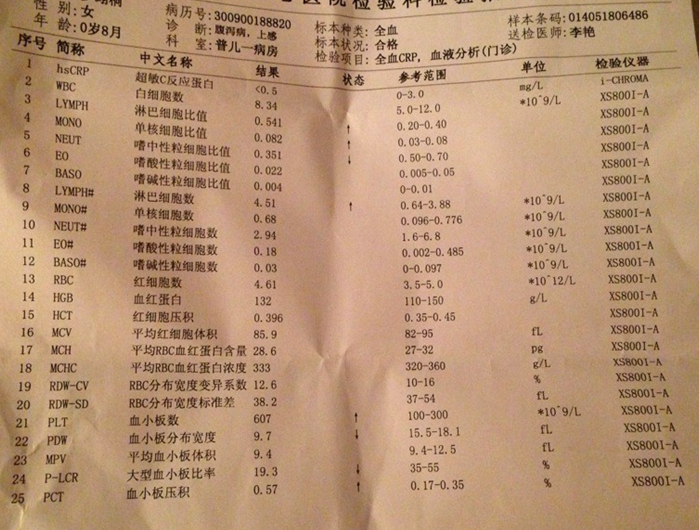 医院检验科检验
性 别: 女 病历号: 300900188820 标本种类: 全血 样本条码: 014051806486
年 龄: 0岁8月 诊 断: 腹泻病, 上感 标本状况: 合格 送检医师: 李艳
科 室: 普儿一病房 检验项目: 全血CRP, 血液分析(门诊)
序号 简称 中文名称 结果 状态 参考范围 单位 检验仪器
1 hsCRP 超敏C反应蛋白 <0.5 0-3.0 mg/L i-CHROMA
2 WBC 白细胞数 8.34 5.0-12.0 *10^9/L XS800I-A
3 LYMPH 淋巴细胞比值 0.541 ↑ 0.20-0.40 XS800I-A
4 MONO 单核细胞比值 0.082 ↑ 0.03-0.08 XS800I-A
5 NEUT 嗜中性粒细胞比值 0.351 ↓ 0.50-0.70 XS800I-A
6 EO 嗜酸性粒细胞比值 0.022 0.005-0.05 XS800I-A
7 BASO 嗜碱性粒细胞比值 0.004 0-0.01 XS800I-A
8 LYMPH# 淋巴细胞数 4.51 ↑ 0.64-3.88 *10^9/L XS800I-A
9 MONO# 单核细胞数 0.68 0.096-0.776 *10^9/L XS800I-A
10 NEUT# 嗜中性粒细胞数 2.94 1.6-6.8 *10^9/L XS800I-A
11 EO# 嗜酸性粒细胞数 0.18 0.002-0.485 *10^9/L XS800I-A
12 BASO# 嗜碱性粒细胞数 0.03 0-0.097 *10^9/L XS800I-A
13 RBC 红细胞数 4.61 3.5-5.0 *10^12/L XS800I-A
14 HGB 血红蛋白 132 110-150 g/L XS800I-A
15 HCT 红细胞压积 0.396 0.35-0.45 XS800I-A
16 MCV 平均红细胞体积 85.9 82-95 fL XS800I-A
17 MCH 平均RBC血红蛋白含量 28.6 27-32 pg XS800I-A
18 MCHC 平均RBC血红蛋白浓度 333 320-360 g/L XS800I-A
19 RDW-CV RBC分布宽度变异系数 12.6 10-16 % XS800I-A
20 RDW-SD RBC分布宽度标准差 38.2 37-54 fL XS800I-A
21 PLT 血小板数 607 ↑ 100-300 *10^9/L XS800I-A
22 PDW 血小板分布宽度 9.7 ↓ 15.5-18.1 fL XS800I-A
23 MPV 平均血小板体积 9.4 9.4-12.5 fL XS800I-A
24 P-LCR 大型血小板比率 19.3 ↓ 35-55 % XS800I-A
25 PCT 血小板压积 0.57 ↑ 0.17-0.35 % XS800I-A